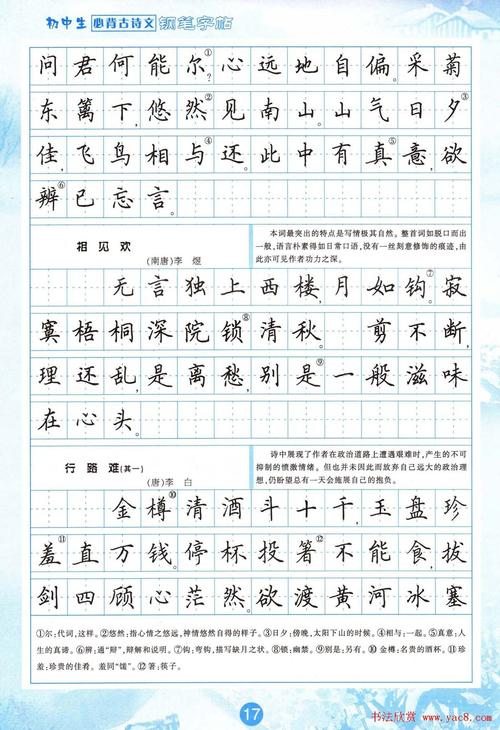 初中生 必背古诗文 钢笔字帖
问君何能尔①?心远地自偏。采菊
东篱下,悠然②见南山。山气日夕③
佳,飞鸟相与④还。此中有真⑤意,欲
辨⑥已忘言。
相见欢
(南唐)李 煜
本词最突出的特点是写情极其自然。整首词如脱口而出
一般,语言朴素得如日常口语,没有一丝刻意修饰的痕迹,由
此亦可见作者功力之深。
无言独上西楼,月如钩⑦。寂
寞梧桐深院锁⑧清秋。 剪不断,
理还乱,是离愁,别是⑨一般滋味
在心头。
行路难(其一)
(唐)李 白
诗中展现了作者在政治道路上遭遇艰难时,产生的不可
抑制的愤激情绪。但也并未因此而放弃自己远大的政治理
想,仍盼望总有一天会施展自己的抱负。
金樽⑩清酒斗十千,玉盘珍
羞⑪直万钱。停杯投箸⑫不能食,拔
剑四顾心茫然。欲渡黄河冰塞
①尔:代词,这样。②悠然:指心情之悠远,神情悠然自得的样子。③日夕:傍晚,太阳下山的时候。④相与:一起。⑤真意:人
生的真谛。⑥辨:通“辩”,辩解和说明。⑦钩:弯钩,描写缺月之状。⑧锁:幽禁。⑨别是:另有。⑩金樽:名贵的酒杯。⑪珍
羞:珍贵的佳肴。羞同“馐”。⑫箸:筷子。
17
书法欣赏 www.yac8.com